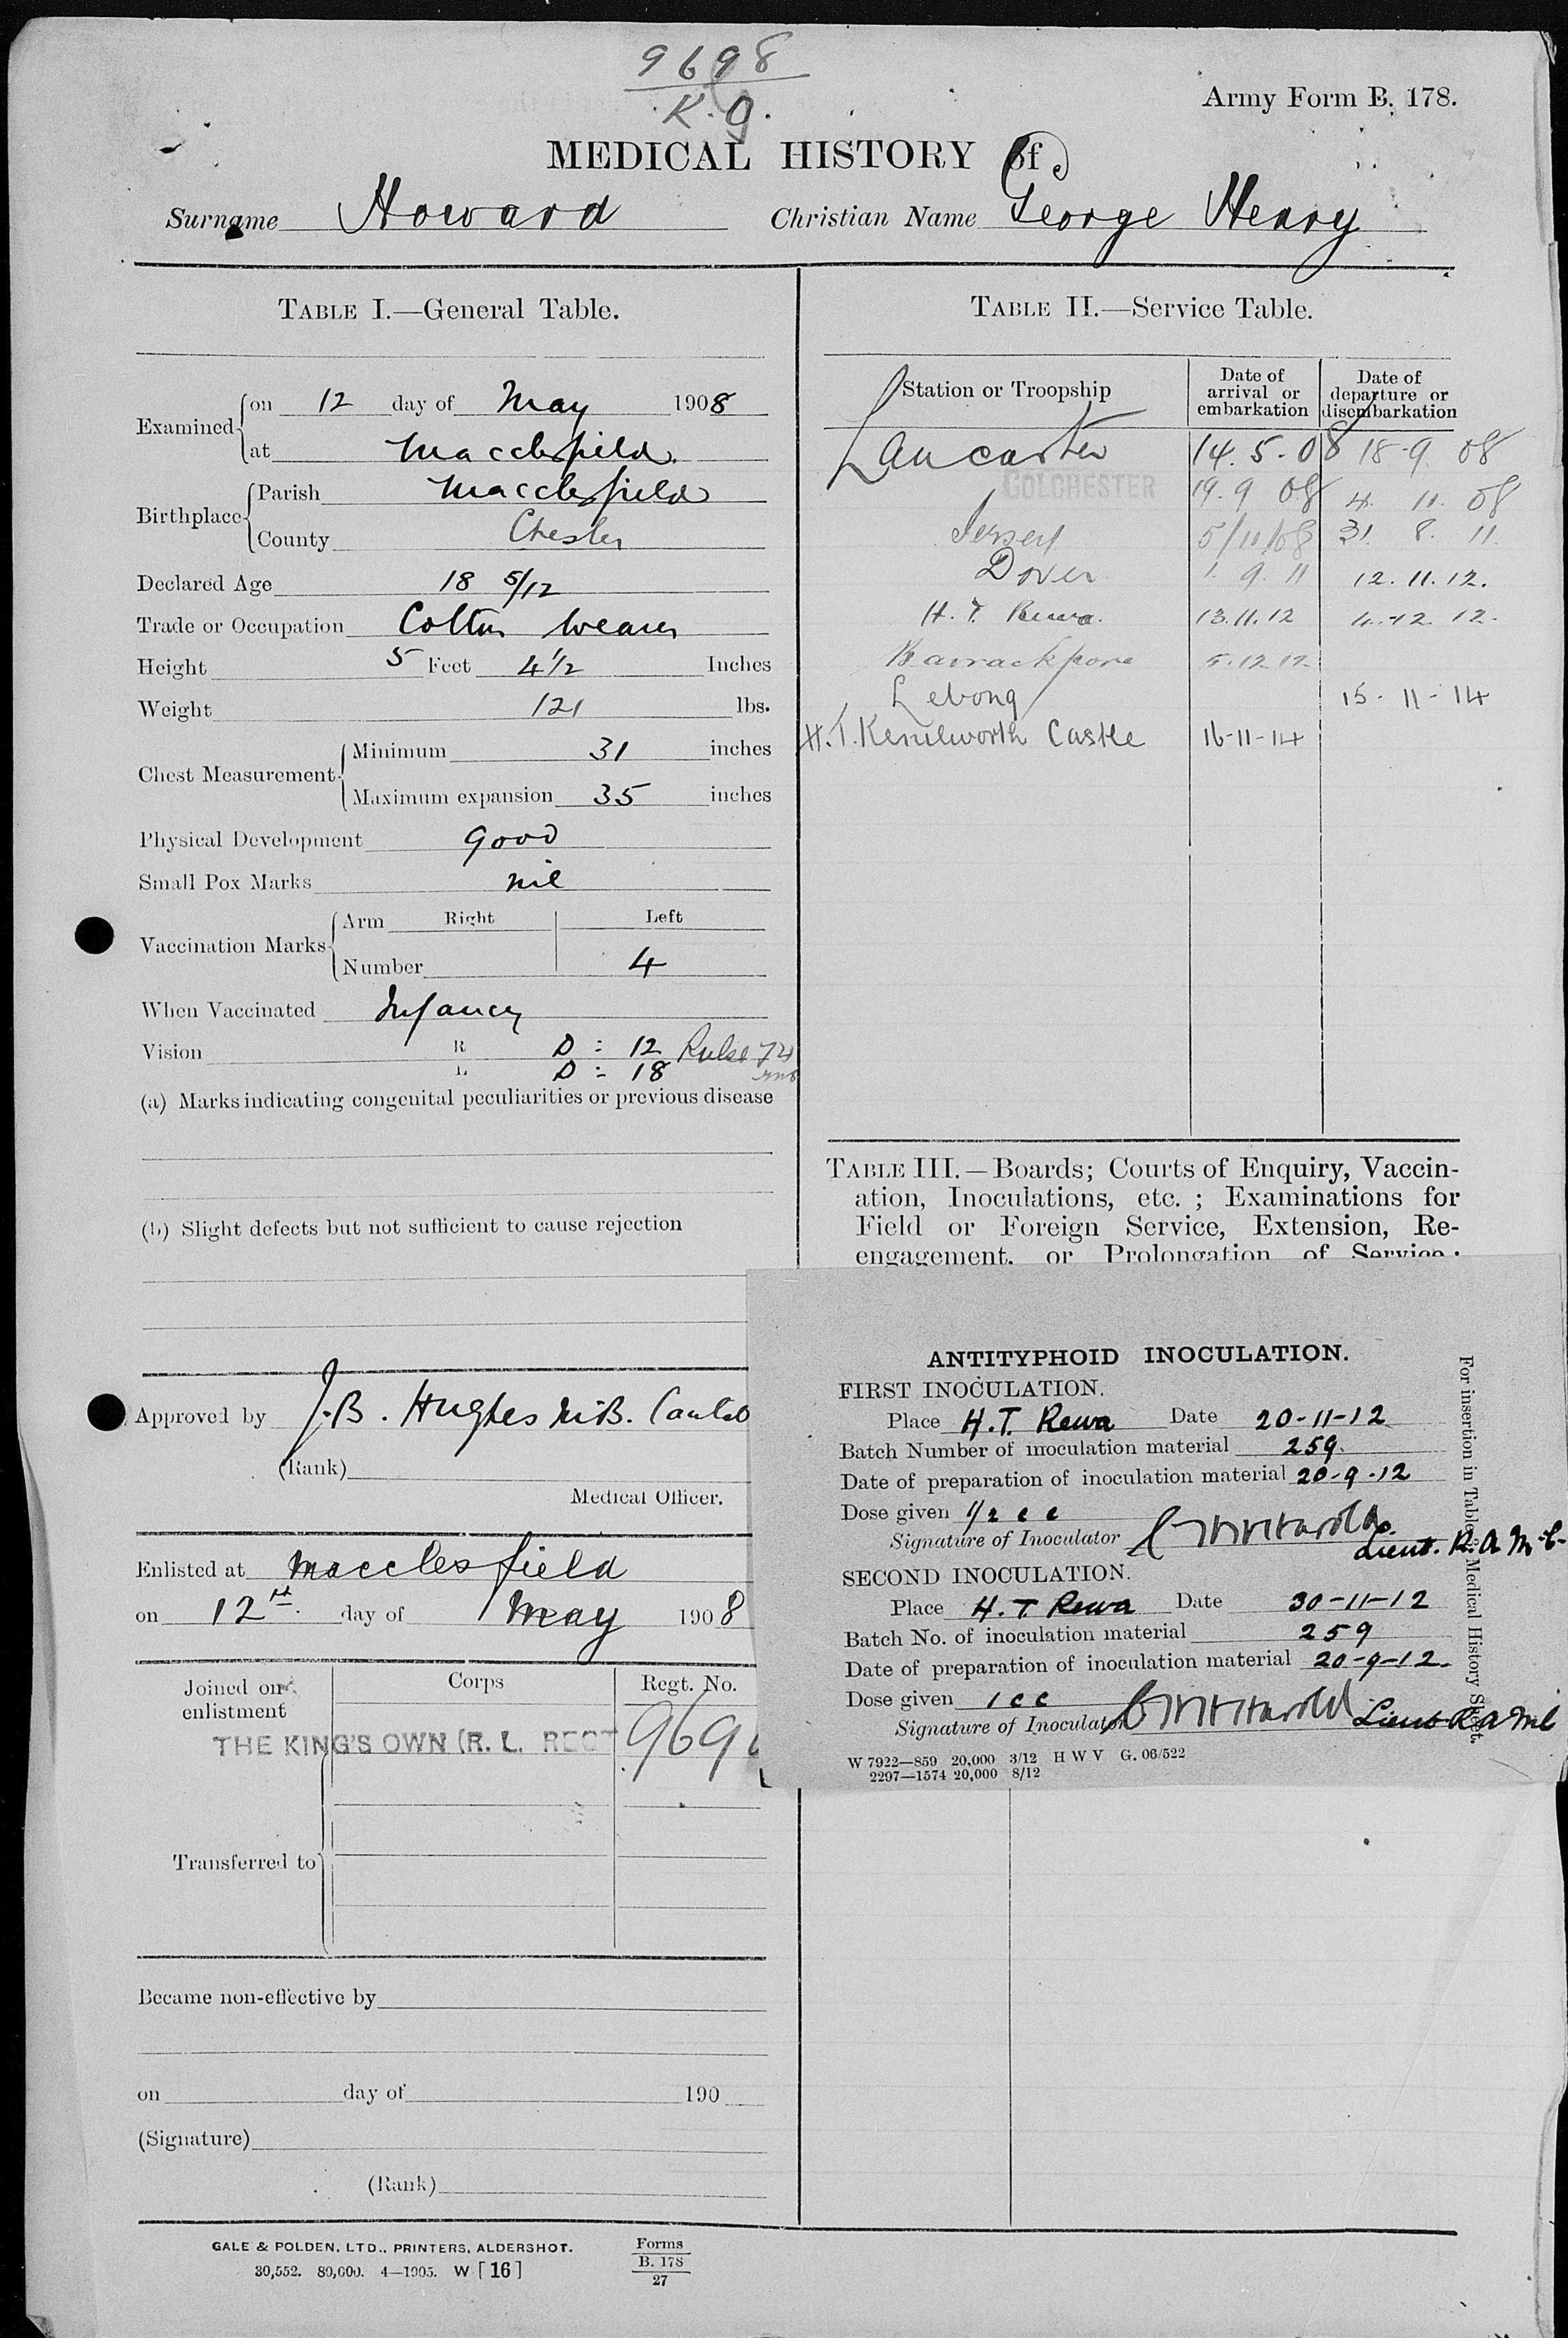 9698
K.O.
Army Form B. 178.
MEDICAL HISTORY of
Surname Howard Christian Name George Henry
TABLE I.—General Table.
Examined on 12 day of May 1908
at Macclesfield.
Birthplace Parish Macclesfield
County Chester
Declared Age 18 5/12
Trade or Occupation Cotton Weaver
Height 5 Feet 4 1/2 Inches
Weight 121 lbs.
Chest Measurement Minimum 31 inches
Maximum expansion 35 inches
Physical Development good
Small Pox Marks nil
Vaccination Marks Arm Right Left
Number 4
When Vaccinated Infancy
Vision R D = 12 Pulse 74
L D = 18
(a) Marks indicating congenital peculiarities or previous disease
(b) Slight defects but not sufficient to cause rejection
Approved by J.B. Hughes M.B. Cantab
(Rank)
Medical Officer.
Enlisted at Macclesfield
on 12th day of May 1908
Joined on enlistment Corps Regt. No.
THE KING'S OWN (R. L. REGT 969
Transferred to
Became non-effective by
on day of 190
(Signature)
(Rank)
GALE & POLDEN, LTD., PRINTERS, ALDERSHOT.
30,552. 80,000. 4—1905. W [16]
Forms
B. 178
27
TABLE II.—Service Table.
Station or Troopship Date of arrival or embarkation Date of departure or disembarkation
Lancaster 14.5.08 18-9 08
COLCHESTER 19.9 08 4. 11. 08
Jersey 5/11/08 31. 8. 11
Dover 1. 9. 11 12.11.12.
H.T. Rewa. 13.11.12 4.12.12.
Barrackpore 5.12.12
Lebong 15-11-14
H.T. Kenilworth Castle 16-11-14
TABLE III.—Boards; Courts of Enquiry, Vaccin-
ation, Inoculations, etc.; Examinations for
Field or Foreign Service, Extension, Re-
engagement, or Prolongation of Service;
ANTITYPHOID INOCULATION.
FIRST INOCULATION.
Place H.T. Rewa Date 20-11-12
Batch Number of inoculation material 259.
Date of preparation of inoculation material 20-9-12
Dose given 1/2 cc
Signature of Inoculator
Lieut. R.A.M.C.
SECOND INOCULATION.
Place H.T. Rewa Date 30-11-12
Batch No. of inoculation material 259
Date of preparation of inoculation material 20-9-12
Dose given 1 cc
Signature of Inoculator Lieut RAMC
W 7922—859 20,000 3/12 H W V G. 06/522
2297—1574 20,000 8/12
For insertion in Table Medical History Sheet.